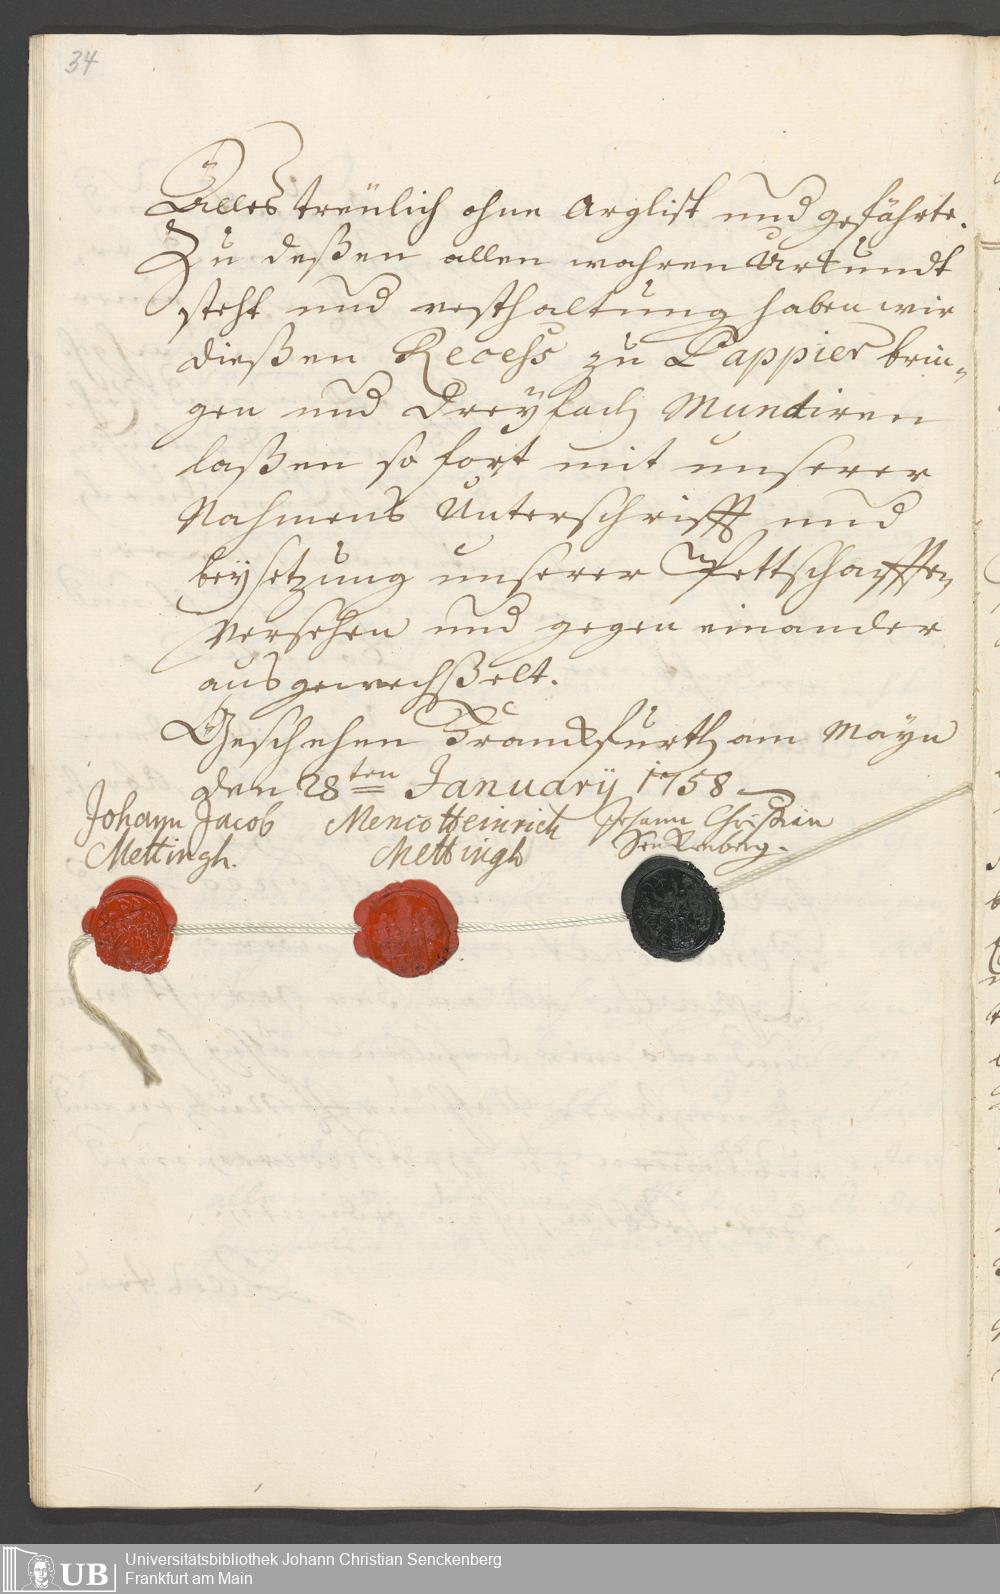 34
Alles treülich ohne Arglist und gefährte.
Zu deßen allen wahren Urkundt
steht und vesthaltung haben wir
dießen Recess zu Pappier brin„
gen und Dreyfach Mundiren
laßen so fort mit unserer
Nahmens Unterschrifft und
beysetzung unserer Pettschafften
versehen und gegen einander
ausgewechßelt.
Geschehen Franckfurth am Mayn
den 28ten January 1758
Johann Jacob Menco Heinrich Johann Christian
Mettingh. Mettingh Senckenberg.
UB Universitätsbibliothek Johann Christian Senckenberg
Frankfurt am Main